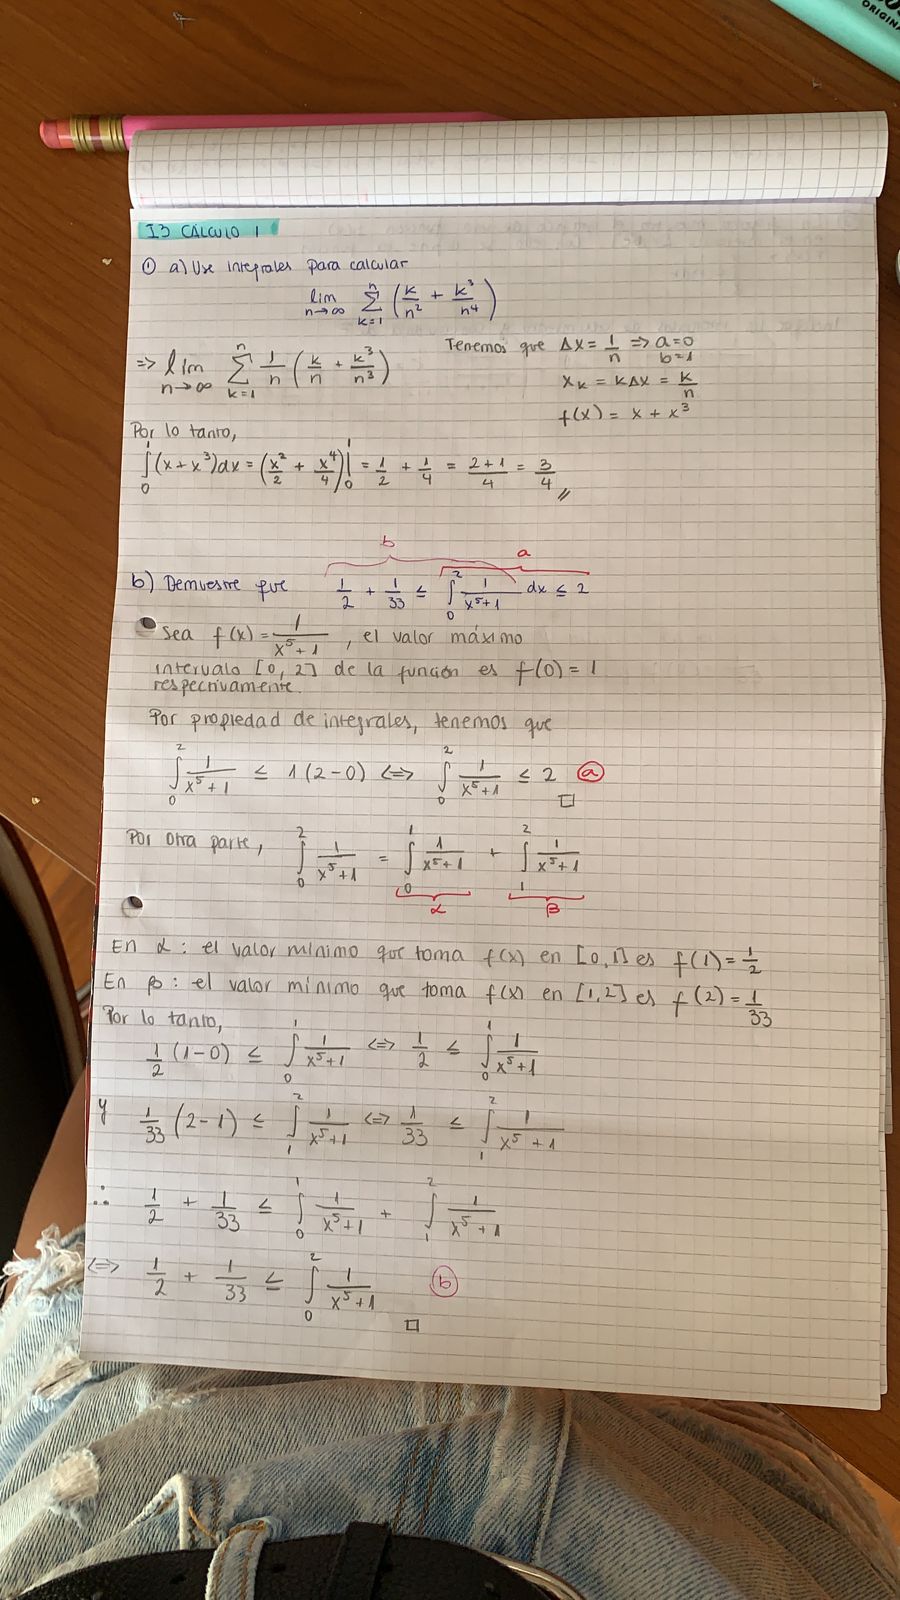 ORIGINA
I3 CÁLCULO 1
① a) Use integrales para calcular
lim n→∞ Σ k=1 n (k/n² + k³/n⁴)
=> lim n→∞ Σ k=1 n 1/n (k/n + k³/n³)
Tenemos que Δx = 1/n => a=0 b=1
x_k = kΔx = k/n
f(x) = x + x³
Por lo tanto,
∫₀¹ (x+x³)dx = (x²/2 + x⁴/4)|₀¹ = 1/2 + 1/4 = (2+1)/4 = 3/4 //
b a
b) Demuestre que 1/2 + 1/33 ≤ ∫₀² 1/(x⁵+1) dx ≤ 2
Sea f(x) = 1/(x⁵+1), el valor máximo
intervalo [0, 2] de la función es f(0) = 1
respectivamente.
Por propiedad de integrales, tenemos que
∫₀² 1/(x⁵+1) ≤ 1(2-0) <=> ∫₀² 1/(x⁵+1) ≤ 2 ⓐ
□
Por otra parte, ∫₀² 1/(x⁵+1) = ∫₀¹ 1/(x⁵+1) + ∫₁² 1/(x⁵+1)
α β
En α: el valor mínimo que toma f(x) en [0,1] es f(1) = 1/2
En β: el valor mínimo que toma f(x) en [1,2] es f(2) = 1/33
Por lo tanto,
1/2 (1-0) ≤ ∫₀¹ 1/(x⁵+1) <=> 1/2 ≤ ∫₀¹ 1/(x⁵+1)
y 1/33 (2-1) ≤ ∫₁² 1/(x⁵+1) <=> 1/33 ≤ ∫₁² 1/(x⁵+1)
∴ 1/2 + 1/33 ≤ ∫₀¹ 1/(x⁵+1) + ∫₁² 1/(x⁵+1)
<=> 1/2 + 1/33 ≤ ∫₀² 1/(x⁵+1) ⓑ
□